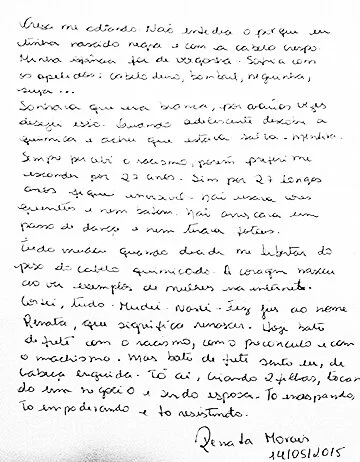 Cresci me odiando. Não entendia o porque eu
tinha nascido negra e com o cabelo crespo.
Minha infância foi de vergonha. Sofria com
os apelidos: cabelo duro, bombril, neguinha,
suja...
Sonhava que era branca, por várias vezes
desejei isto. Quando adolescente descobri a
química e achei que estava salva. Mentira.
Sempre percebi o racismo, porém preferi me
esconder por 27 anos. Sim por 27 longos
anos fiquei invisível. Não usava cores
quentes e nem saltos. Não arriscava um
passo de dança e nem tirava fotos.
Tudo mudou quando decidi me libertar do
peso do cabelo quimicado. A coragem nasceu
ao ver exemplos de mulheres na internet.
Cortei, tudo. Mudei. Nasci. Fiz jus ao nome
Renata, que significa renascer. Hoje bato
de frente com o racismo, com o preconceito e com
o machismo. Mas bato de frente sendo eu, de
cabeça erguida. Tô aí, criando 2 filhas, tocan
do um negócio e sendo esposa. To encrespando,
to empoderando e to resistindo.
Renata Morais
14/05/2015